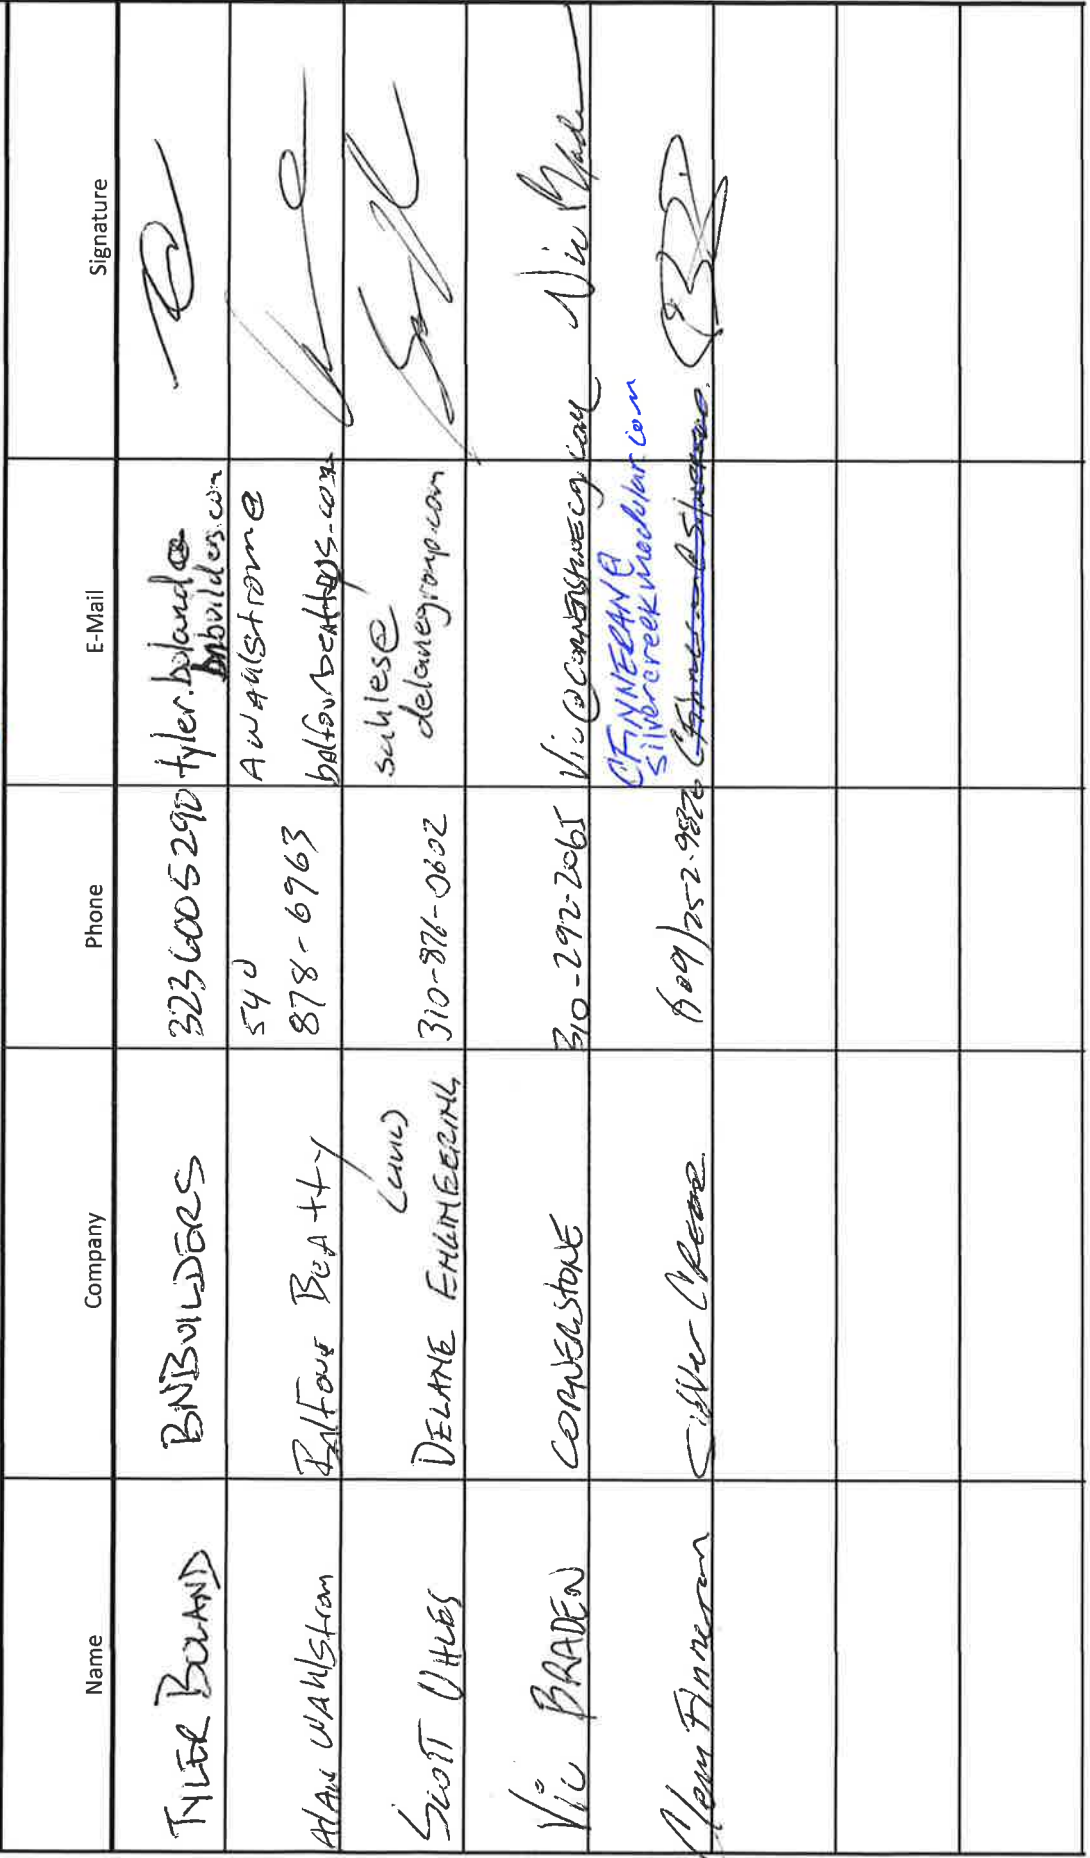 Name Company Phone E-Mail Signature
TYLER BOLAND BNBUILDERS 3236005290 tyler.boland@
bnbuilders.com
540 AWAHlstrom@
ADAM WAHlstrom BAlfour BEAtty 878-6963 balfourbeattyus.com
SCOTT UHLES DELANE ENGINEERING 310-876-0602 suhles@
delanegroup.com
Vic BRADEN CORNERSTONE 310-292-2065 Vic@CORNERSTONECG.COM Vic Braden
CFINNERAN@
silvercreekmodular.com
Clem Finneran Silver Creek 909/252-9826